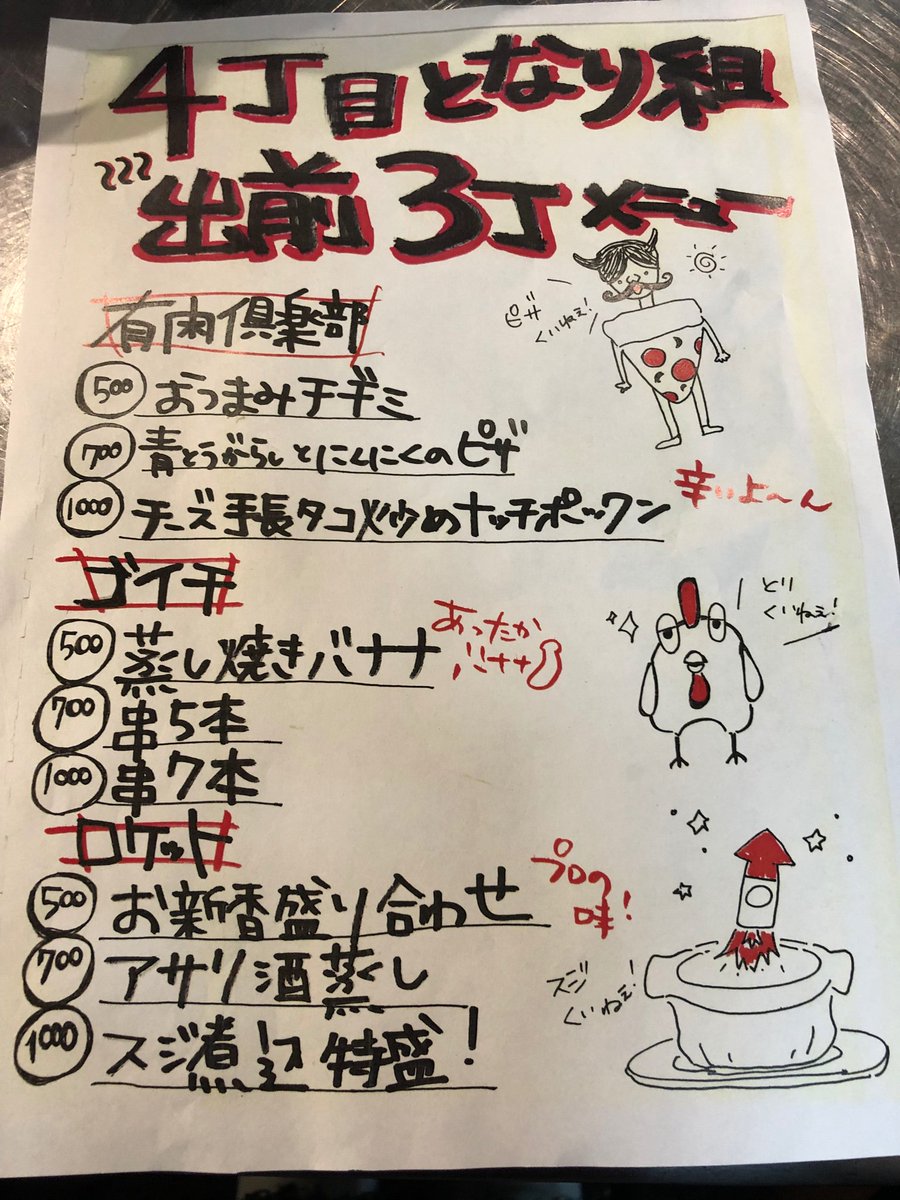 4丁目となり組
出前3丁メニュー
ピザ
くいねぇ!
有肉倶楽部
500 おつまみチヂミ
700 青とうがらしとにんにくのピザ
1000 チーズ手長タコ炒めナッチポックン
辛いよ〜ん
ゴイチ
とり
くいねぇ!
500 蒸し焼きバナナ
あったか
バナナ
700 串5本
1000 串7本
ロケット
500 お新香盛り合わせ
プロの
味!
700 アサリ酒蒸し
スジ
くいねぇ!
1000 スジ煮 特盛!